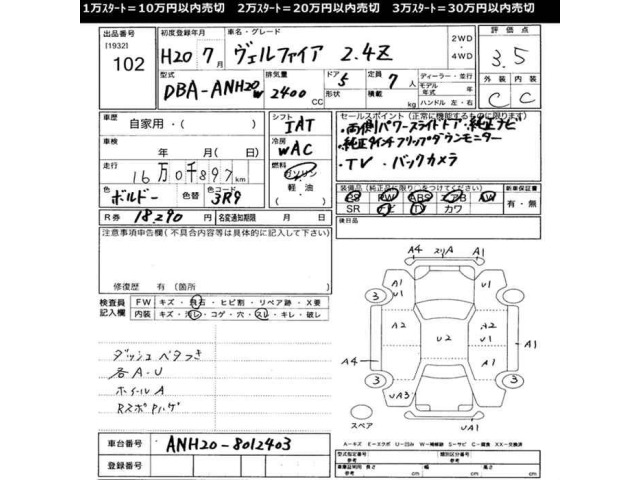 1万スタート=10万円以内売切 2万スタート=20万円以内売切 3万スタート=30万円以内売切
出品番号
[1932]
102
初度登録年月
H20 7月
車名・グレード
ヴェルファイア 2.4Z
2WD
4WD
評価点
3.5
型式
DBA-ANH20W
排気量
2400 CC
ドア 5
形状
定員 7人
積載 kg
ディーラー・並行
モデル年式 年
ハンドル 左・右
外装 内装
C C
車歴
自家用・( )
シフト
IAT
車検
年 月( 日)
冷房
WAC
走行
16万0千897km
燃料
ガソリン
軽油
・( )
色
ボルドー
色コード
3R9
R券 18,290 円
名変通知期限 月 日
セールスポイント (正常に機能するものに限ります)
・両側パワースライドドア・純正ナビ
・純正9インチフリップダウンモニター
・TV ・バックカメラ
装備品(純正品に限り○をつけてください)
PS PW ABS エアB AW
SR ナビ TV カワ
新車保証書
有・無
後日品
注意事項申告欄(不具合内容等は具体的に記入して下さい)
修復歴 有(箇所 )
検査員記入欄
FW キズ・飛石・ヒビ割・リペア跡・X要
内装 キズ・汚レ・コゲ・穴・スレ・キレ・破レ
ダッシュベタつき
各A・U
ホイールA
車台番号 ANH20-8012403
登録番号
A4 スリA A1
A1 U1 A1 U1
3 3
A2 A2 U1
U2
A4 A1
3 3
UA3 U1
UA1
スペア
A-キズ E-エクボ U-凹み W-補修跡 S-サビ C-腐食 XX-交換済
型式指定番号
参考
類別区分番号
参考
車庫証明用 長さ
参考 cm
幅
cm
高さ
cm